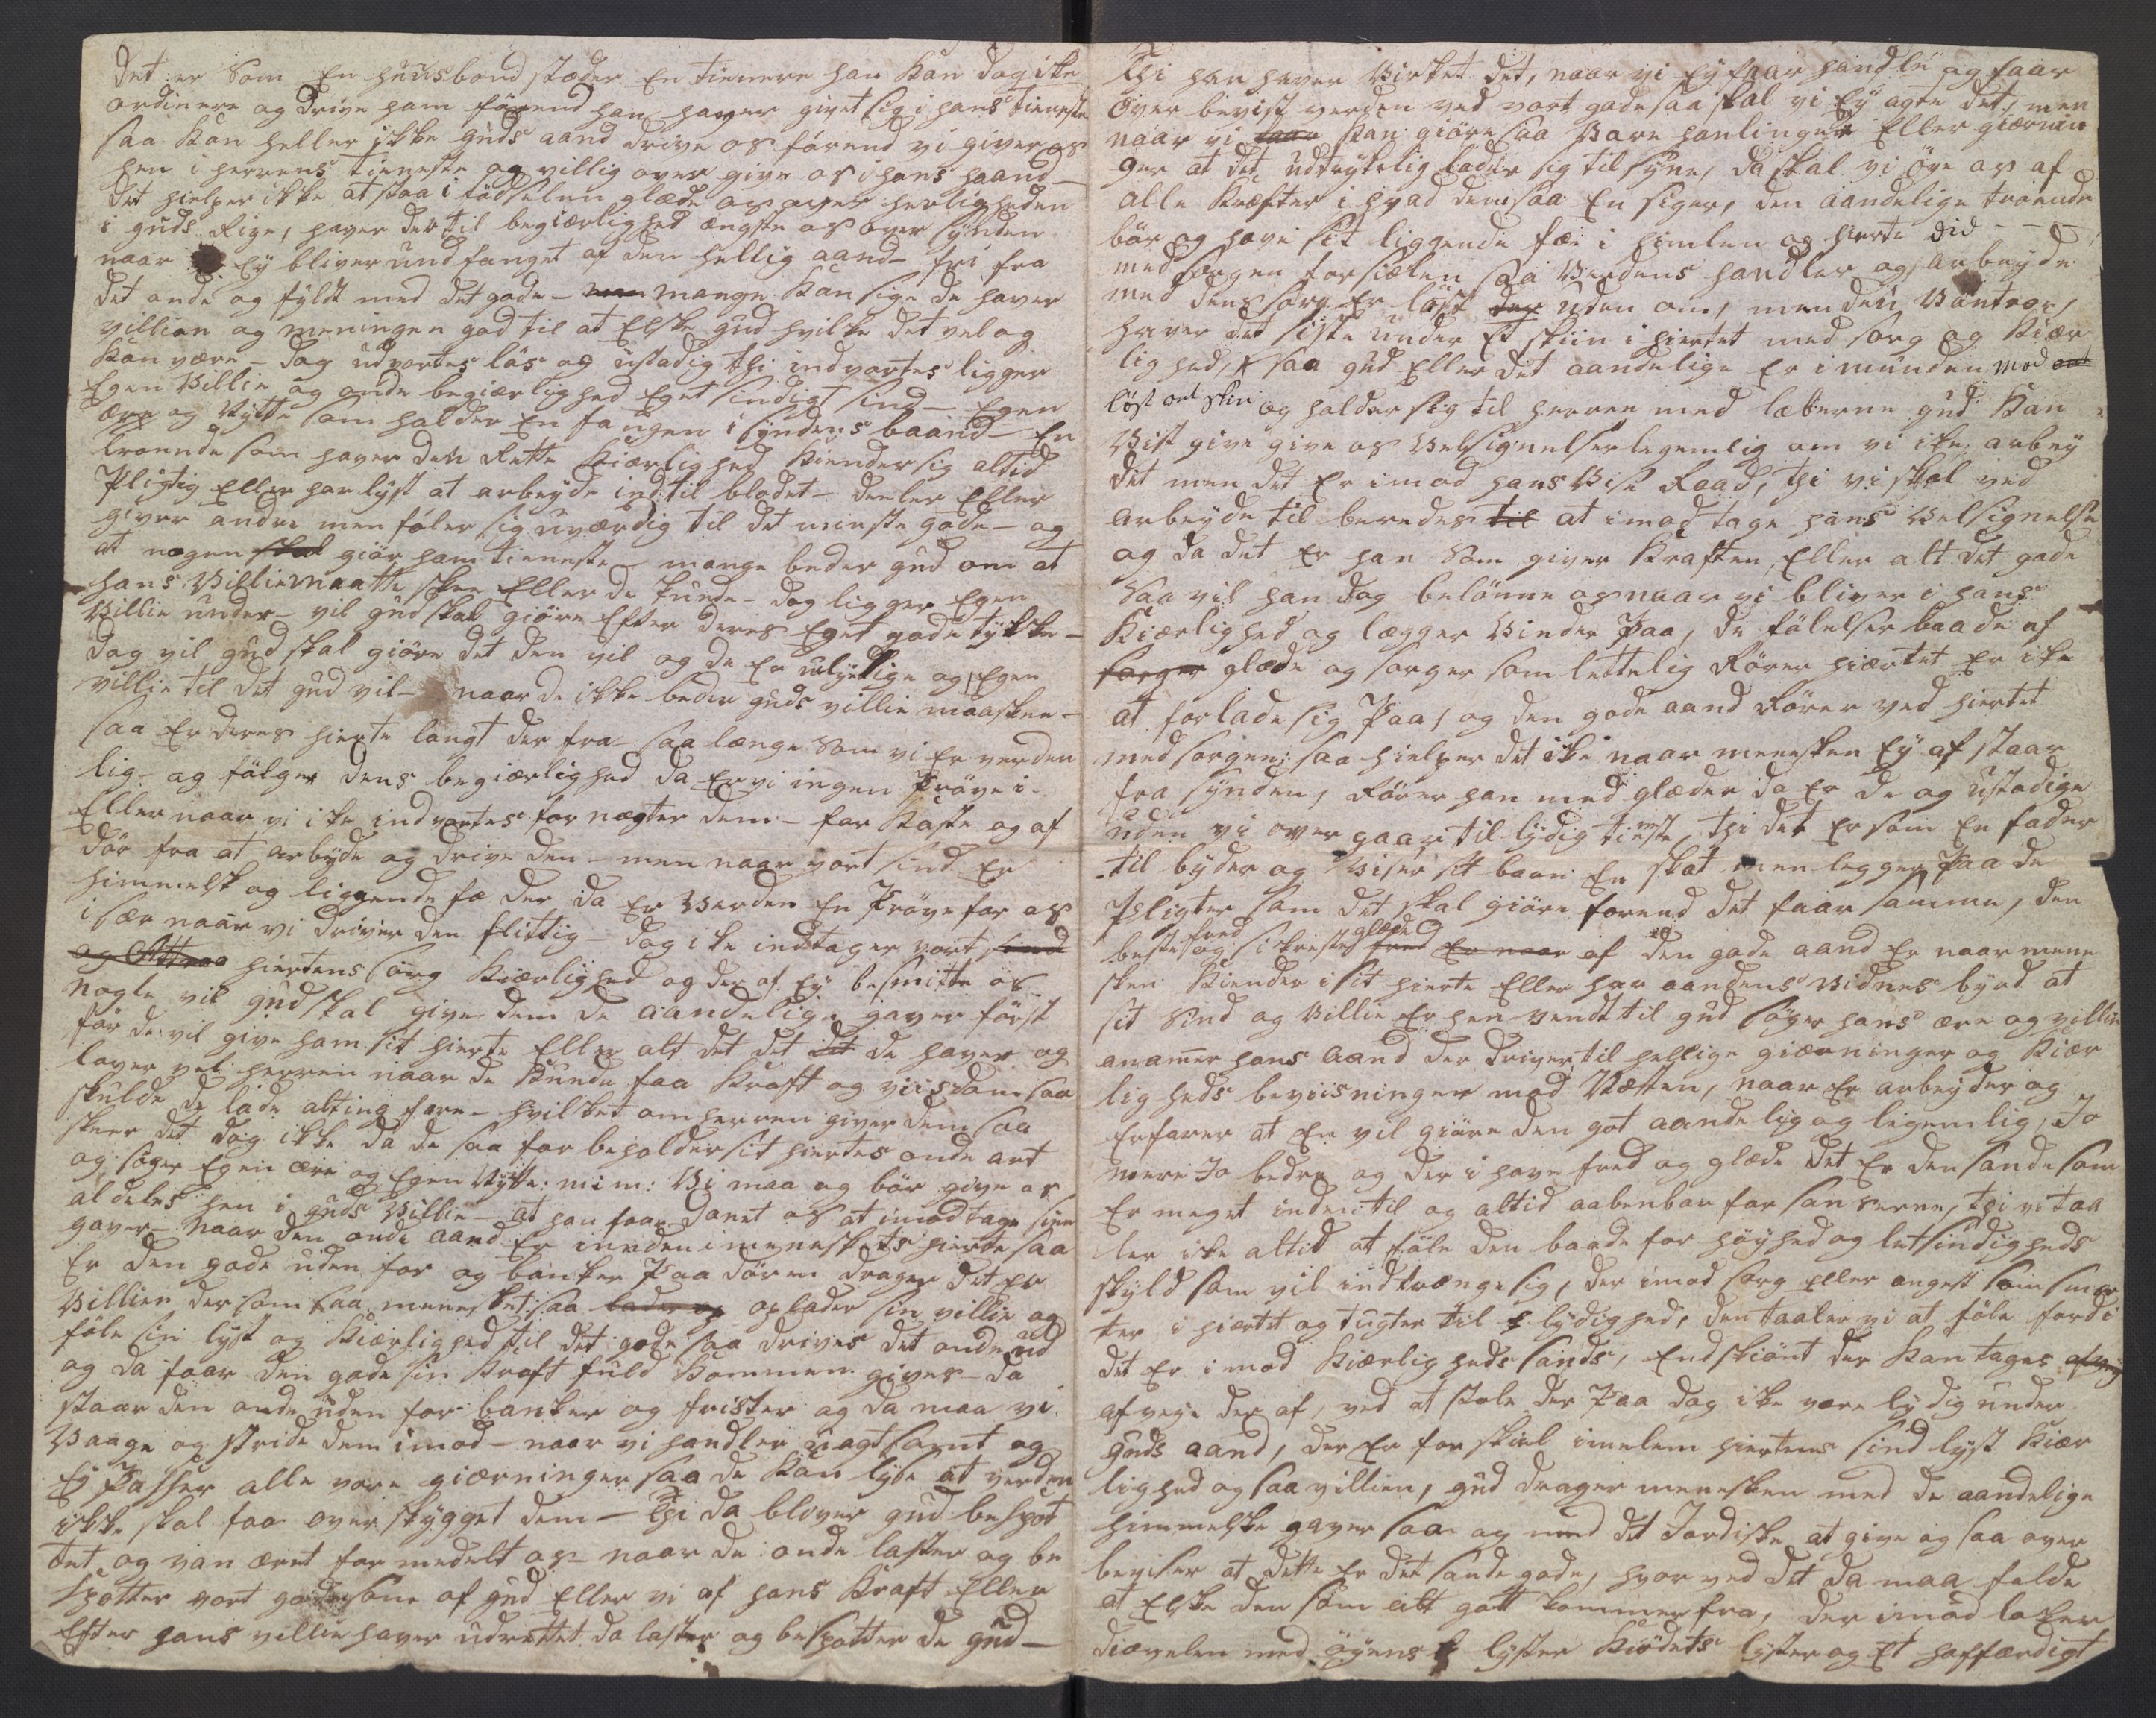 det er Som En huusbond stæder En tienere han Kan dog ikke
ordinere og drive ham förend han haver givet sig i hans tieneste
saa Kan heller ikke guds aand drive os förend vi giver os
hen i herrens tieneste og villig over give os i hans haand
det hielper ikke at staa i födselen glæde os over herligheden
i guds Rige, haver der til begiærlighed ængste os over synden
naar Ey bliver undfanget af den hellig aand fri fra
det onde og fyldt med det gode - mange Kan sige de haver
villien og meningen god til at Elske gud hvilke det vel og
Kan være - dog udvortes lös og ustadig thi indvortes ligger
Egen Villie og onde begiærlighed Eget sindigt sind - Egen
ære og Nytte som holder En fangen i syndens baand - En
troende som haver den Rette Kiærlighed Kiender sig altid
Pligtig Eller har lyst at arbeyde ind til blodet - deeler Eller
giver andre men föler sig uværdig til det minste gode - og
at nogen skal giör ham tieneste - mange beder gud om at
hans Villie maatte skee Eller de Kunde - dog ligger Egen
Villie under - vil gud skal giöre Efter deres Eget gode tykke -
dog vil gud skal giöre det den vil og de Er ulydige og Egen
villie til det gud vil - naar de ikke beder guds villie maa skee -
saa Er deres hierte langt der fra - saa længe som vi Er verden
lig - og fölger dens begiærlighed da Er vi ingen Pröve i
Eller naar vi ike indvortes for nægter dem - for Kaste og af
dör fra at arbyde og drive den - men naar vort sind Er
himmelsk og liggende fæ der da Er Verden En Pröve for os
i sær naar vi driver den flittig - dog ike indtager vort sind
hiertens sorg Kiærlighed og der af Ey besmitte os
nogle vil gud skal give dem de aandelige gaver först
för de vil give ham sit hierte Eller alt det det det de haver og
lover vel herren naar de Kunde faa Kraft og viisdom saa
skulde de lade alting fare - hvilket om herren giver dem saa
skeer det dog ikke da de saa for beholder sit hiertes onde art
og söger Egen ære og Egen Nytte: m: m: Vi maa og bör give os
aldeles hen i guds Villie - at han faar Danet os at imodtage sine
gaver - Naar den onde aand Er inden i meneskets hierte saa
Er den gode uden for og banker Paa dören drager det Er
Villien der som faa menesket: saa lader op oplader sin villie og
föle sin lyst og Kiærlighed til det gode saa drives det onde ud
og da faar den gode sin Kraft fuld Kommen gives - da
staar den onde uden for banker og frister og da maa vi
Vaage og stride dem imod - naar vi handler uagtsomt og
Ey Passer alle vore giærninger saa de Kan lyse at verden
ikke skal faa over skygget dem - Thi da bliver gud bespot
tet og van æret formedelst os naar de onde laster og be
spotter vort gode som af gud Eller vi af hans Kraft Eller
Efter hans villie haver udrettet da laster og bespotter de gud -
Thi han haver Virket det, naar vi Ey faar handle og faar
över bevist verden ved vort gode saa skal vi Ey agte det, men
naar vi faar Kan giöre saa Vare hanlinger Eller giærnin
ger at det udtrykelig lader sig til syne, da skal vi öve os af
alle Kræfter i hvad dem saa En siger, den aandelige troende
bör og have sit liggende fæ i himlen og hierte did
med sorgen for siælen saa Verdens handler og arbeyde
med dens sorg Er löst der uden om, men den Vantroe,
haver det siste under Et skiin i hiertet med sorg og Kiær
lighed, saa gud Eller det aandelige Er i munden mod
löst ord skin og holder sig til herren med læberne gud Kan
Vist give give os Velsignelser legemlig om vi ike arbey
det men det Er imod hans Vise Raad, thi vi skal ved
arbeyde til beredes til at imod tage hans Velsignelse
og da det Er han Som giver Kraften, Eller alt det gode
Saa vil han dog belönne os naar vi bliver i hans
Kiærlighed og lægger Vinde Paa, de fölelser baade af
sorger glæde og sorger som lettelig Rörer hiertet Er ike
at forlade sig Paa, og den gode aand Rörer ved hiertet
med sorgen: saa hielper det ike naar mennesken Ey af staar
fra synden, Rörer han med glæder da Er de og ustadige
uden vi over gaar til lydig tieneste, thi det Er som En fader
til byder og Viser sit baan En skat men legger Paa de
Pligter som det skal giöre forend det faar samme, den
fred glæde
beste og sikreste fred Er naar af den gode aand Er naar mene
sken Kiender i sit hierte Eller har aandens Vidnesbyrd at
sit Sind og Villie Er hen vendt til gud söger hans ære og villie
anammer hans aand der driver til hellige giærninger og Kiær
ligheds beviisninger mod Næsten, naar En arbeyder og
Erfarer at En vil giöre den got aandelig og legemlig, Jo
mere Jo bedre og der i have fred og glæde det Er den sande som
Er meget inden til og altid aabenbar for sanserne, thi vi taa
ler ike altid at föle den baade for höyhed og letsindigheds
skyld som vil indtrænge sig, der imod sorg Eller angest som smer
ter i hiertet og tugter til lydighed, den taaler vi at föle fordi
det Er imod Kiærligheds sands, Endskiönt der Kan tages
afveye der af, ved at stole der Paa dog ike være lydig under
guds aand, der Er for skiel imelem hiertens sind lyst Kiær
lighed og saa villien, gud drager menesken med de aandelige
himmelske gaver saa og med det Jordiske at give og saa over
beviser at dette Er det sande gode, hvor ved det da maa falde
at Elske den som alt gott kommer fra, der imod loker
diævelen med öyens lyster Kiödets lyster og Et hoffærdigt